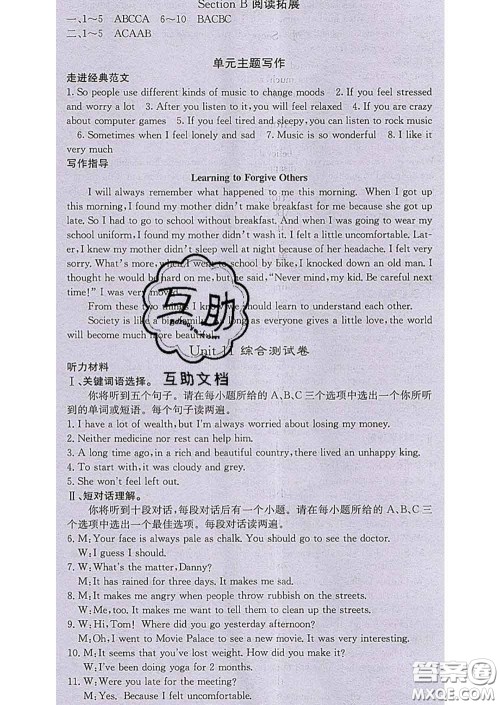 Section B 阅读拓展
一、1～5 ABCCA 6～10 BACBC
二、1～5 ACAAB
单元主题写作
走进经典范文
1. So people use different kinds of music to change moods 2. If you feel stressed
and worry a lot 3. After you listen to it, you will feel relaxed 4. If you are crazy
about computer games 5. If you feel tired and sleepy, you can listen to rock music
6. Sometimes when I feel lonely and sad 7. Music is so wonderful 8. I like it
very much
写作指导
Learning to Forgive Others
I will always remember what happened to me this morning. When I got up
this morning, I found my mother didn't make breakfast for me because she got up
late. So I had to go to school without breakfast. And when I was going to wear my
school uniform, I found my mother didn't wash it. I felt a little uncomfortable. Lat-
er, I knew my mother didn't sleep well at night because of her headache. I felt very
sorry. What's more, when I went to school by bike, I knocked down an old man. I
thought he would be hard on me, but he said, “Never mind, my kid. Be careful next
time!” I was very moved.
From these two things, I know we should learn to understand each other.
Society is like a big family. If we can forgive others, the world will
become much more beautiful.
Unit 11 综合测试卷
听力材料
Ⅰ、关键词语选择。
你将听到五个句子。请在每小题所给的 A、B、C 三个选项中选出一个你所听
到的单词或短语。每个句子读两遍。
1. I have a lot of wealth, but I'm always worried about losing my money.
2. Neither medicine nor rest can help him.
3. A long time ago, in a rich and beautiful country, there lived an unhappy king.
4. To start with, it was cloudy and grey.
5. She won't feel left out.
Ⅱ、短对话理解。
你将听到十段对话，每段对话后有一个小题。请在每小题所给的 A、B、C 三
个选项中选出一个最佳选项。每段对话读两遍。
6. M: Your face is always pale as chalk. You should go to see the doctor.
W: I guess I should.
7. W: What's the matter, Danny?
M: It has rained for three days. It makes me sad.
8. M: It makes me angry when people throw rubbish on the streets.
W: Me, too. It makes me want to tell them to clean up the streets.
9. W: Hi, Tom! Where did you go yesterday afternoon?
M: Oh, I went to Movie Palace to see a new movie. It was very interesting.
10. M: It seems that you've lost weight. How did you make it?
W: I've been doing yoga for 2 months.
11. W: Were you late for the meeting?
M: Yes. Because I felt uncomfortable.
互助
互助文档
答案圈
MXQE.COM